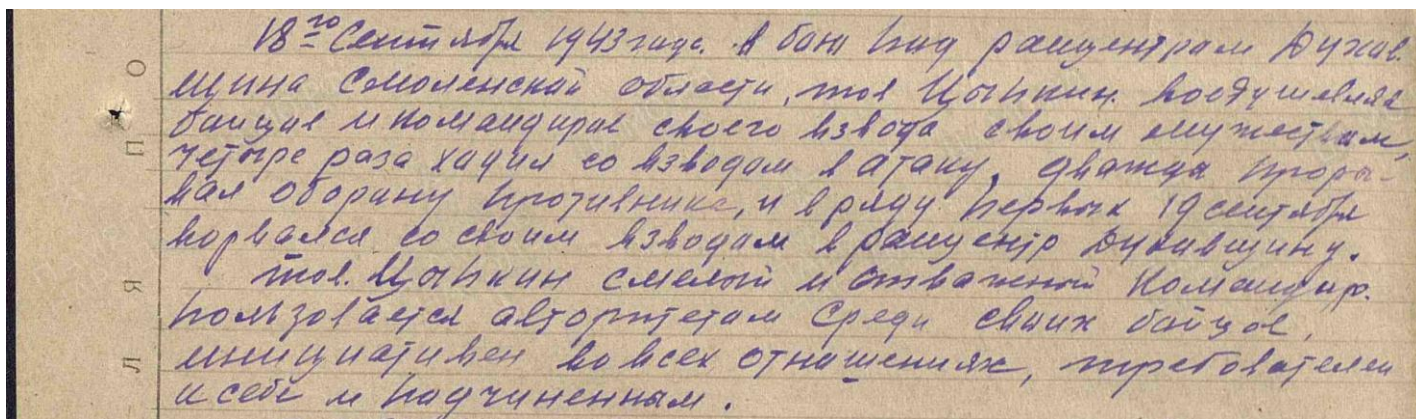 18го Сентября 1943 года. В бою над райцентром Духов.
щина Смоленской области, тов Цыпкин. воодушевляя
бойцов и командиров своего взвода своим мужеством,
четыре раза ходил со взводом в атаку, дважды проры-
вая оборону противника, и в ряду первых 19 сентября
ворвался со своим взводом в райцентр Духовщину.
тов. Цыпкин смелый и отважный командир.
пользователся авторитетом среди своих бойцов,
инициативен во всех отношениях, требователен
к себе и подчиненным.
О
П
Я
Л